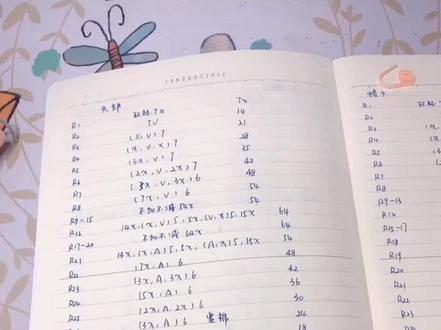 头部
R1 环起7X 7X
R2 7V 14
R3 (X, V) 7 21
R4 (X, V, X) 7 28
R5 (3X, V) 7 35
R6 (2X, V, 2X) 7 42
R7 (3X, V, 3X) 6 48
R8 (7X, V) 6 54
R9-15 不加不减54X 54
R16 14X, (X, V) 5, 5X, (V, X) 5, 15X 64
R17-20 不加不减 64X 64
R21 14X, (X, A) 5, 5X, (A, X) 5, 15X 54
R22 (7X, A) 6 48
R23 (3X, A, 3X) 6 42
R24 (5X, A) 6 36
R25 (2X, A, 2X) 6 30
(3X, A) 6 24
18
帽子
R1 环起
R2
R3 (X
R4
R5 (3
R6 (
R7
R8
R9-13
R14
R15-17
R18
R19
R20
R21
R22
R23